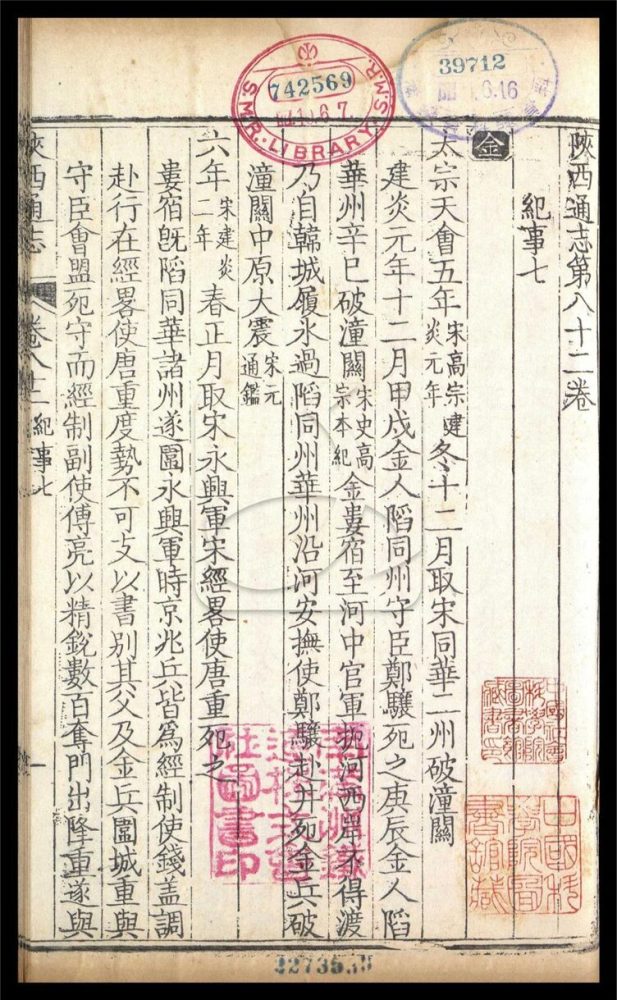 陝西通志第八十二卷
紀事七
金
太宗天會五年宋高宗建炎元年冬十二月取宋同華二州破潼關
建炎元年十二月甲戌金人陷同州守臣鄭驤死之庚辰金人陷
華州辛巳破潼關宋史高宗本紀金婁宿至河中官軍扼河西岸不得渡
乃自韓城履氷過陷同州華州沿河安撫使鄭驤赴井死金兵破
潼關中原大震宋元通鑑
六年宋建炎二年春正月取宋永興軍宋經畧使唐重死之
婁宿旣陷同華諸州遂圍永興軍時京兆兵皆爲經制使錢盖調
赴行在經畧使唐重度勢不可支以書別其父及金兵圍城重與
守臣會盟死守而經制副使傅亮以精銳數百奪門出降重遂與
陝西通志 卷八十二 紀事七 一
742569
S.M.R. LIBRARY S.M.R.
6.7.
39712
6.16
中國科學院圖書館藏
圖書印